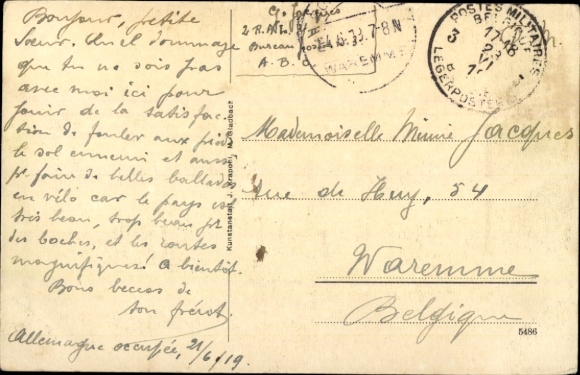 Bonjour, petite
Sœur. Quel dommage
que tu ne sois pas
avec moi ici pour
jouir de la satisfac-
tion de fouler aux pieds
le sol ennemi et aussi
pr faire de belles ballades
en vélo car le pays est
très beau, trop beau pr
des boches, et les routes
magnifiques! A bientôt.
Bons becess de
ton frérot.
Allemagne occupée, 21/6/19.
G. Jacques
2 R.A.
Bureau
A.B.
7-8 N
WAREMME
POSTES MILITAIRES
BELGIQUE
3
17-18
23
VI
LEGERPOSTERIJ
Mademoiselle Mimie Jacques
rue de Huy, 54
Waremme
Belgique
5486
Kunstanstalt J. Krapohl, M. Gladbach